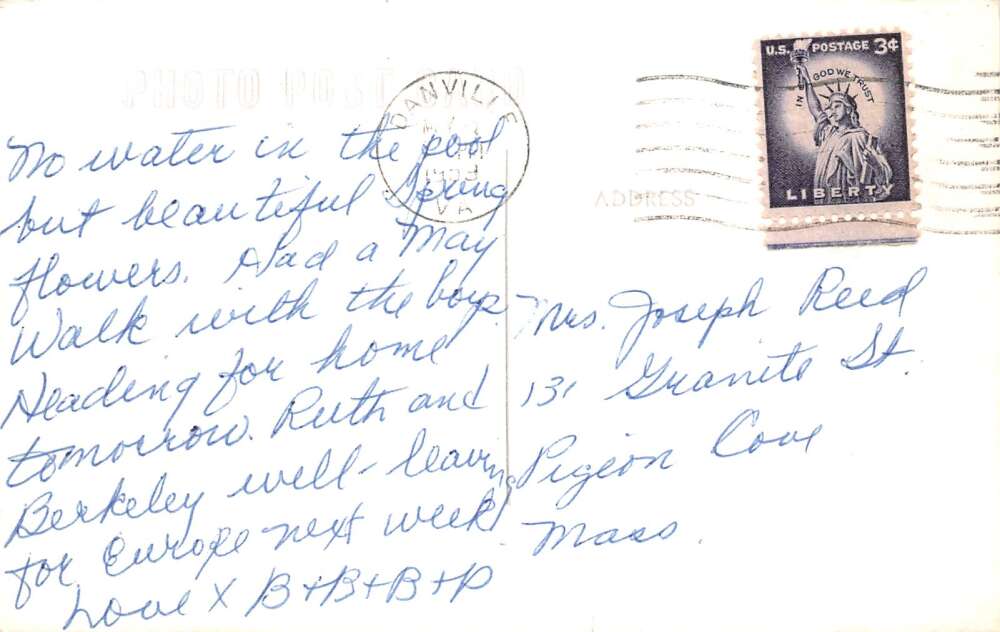 PHOTO POST CARD
DANVILLE
VA
U.S. POSTAGE 3¢
IN GOD WE TRUST
LIBERTY
ADDRESS
No water in the pool
but beautiful Spring
flowers. Had a May
Walk with the boys.
Heading for home
tomorrow. Ruth and
Berkeley well - leaving
for Europe next week
Love X B+B+B+P
Mrs. Joseph Reed
131 Granite St.
Pigeon Cove
Mass.